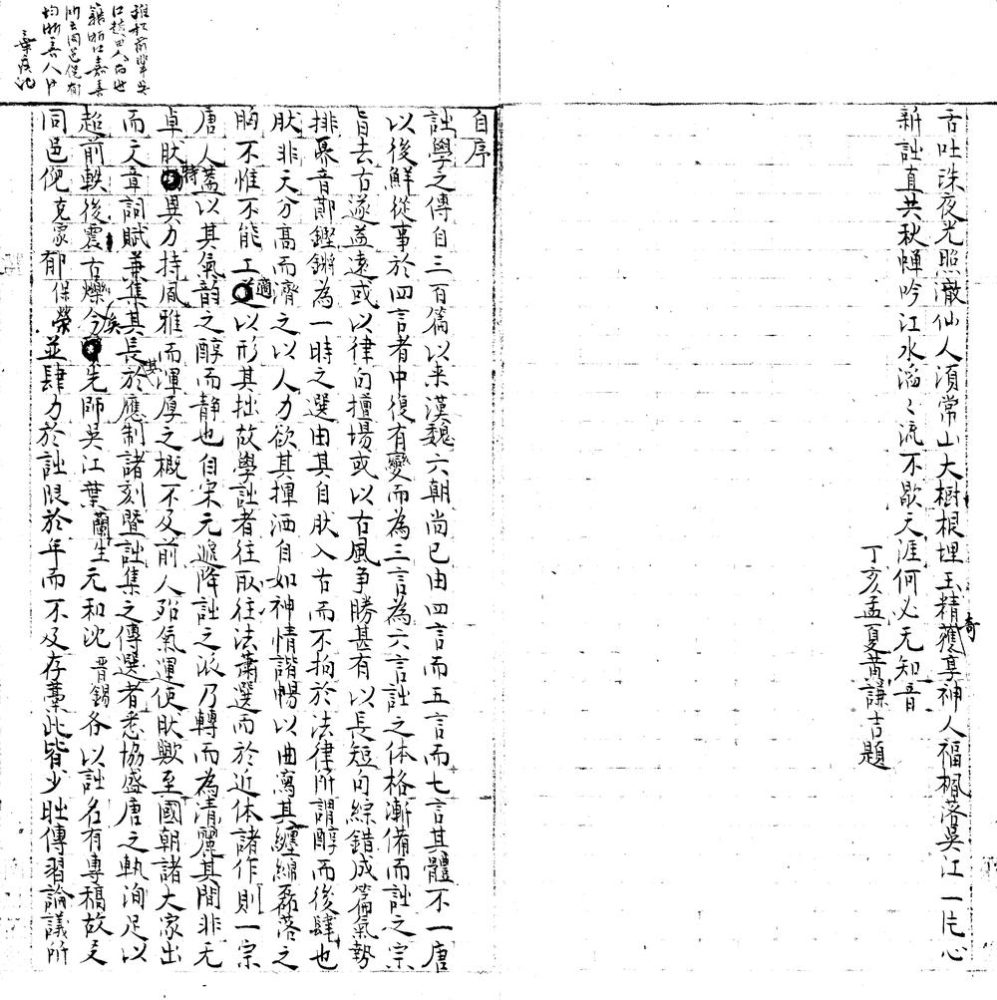 舌吐珠夜光照澈仙人須常山大樹根埋玉精蘒享神人福楓落吳江一片心
奇
新詘直共秋蟬吟江水滔々流不歇天涯何必无知音
丁亥孟夏黄謙吉題
自序
詘學之傳自三百篇以来漢魏六朝尚已由四言而五言而七言其體不一唐
以後鮮從事於四言者中復有變而為三言為六言詘之体格漸備而詘之宗
旨去古遂益遠或以律句擅場或以古風争勝甚有以長短句綜錯成篇氣勢
排奡音節鏗鏘為一時之選由其自肰入古而不拘於法律所謂醇而後肆也
肰非天分高而濟之以人力欲其揮洒自如神情諧暢以曲寫其纏綿磊落之
胸不惟不能工適以形其拙故學詘者往取往法蕭選而於近体諸作則一宗
唐人蓋以其氣韵之醇而静也自宋元遞降詘之派乃轉而為清麗其間非无
卓肰特異力持風雅而渾厚之概不及前人殆氣運使肰歟至國朝諸大家出
其
而文章詞賦兼集其長於應制諸刻暨詘集之傳選者悉協盛唐之軌洵足以
超前軼後震古爍今矣先師吳江葉蘭生元和沈晋錫各以詘名有專稿故友
同邑倪克家郁保榮並肆力於詘限於年而不及存藁此皆少時傳習論議所